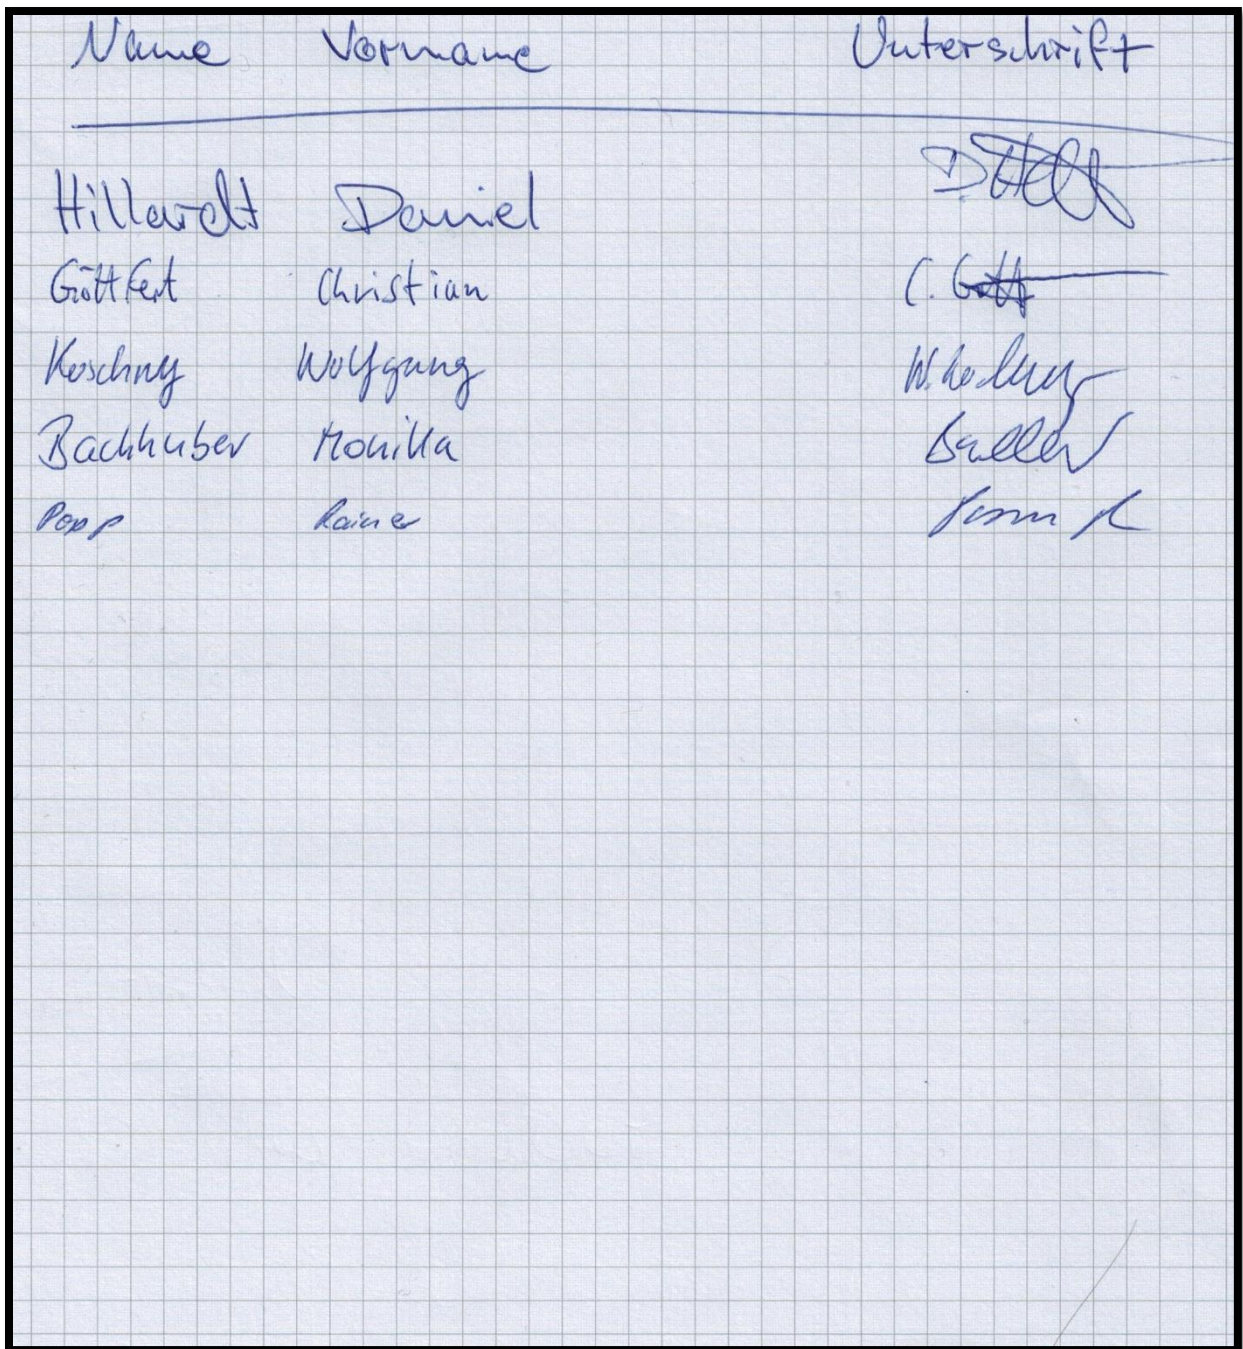 Name Vorname Unterschrift
Hillardt Daniel
Göttfert Christian C. Gött
Koschny Wolfgang W. Koschny
Bachhuber Monika
Popp Rainer